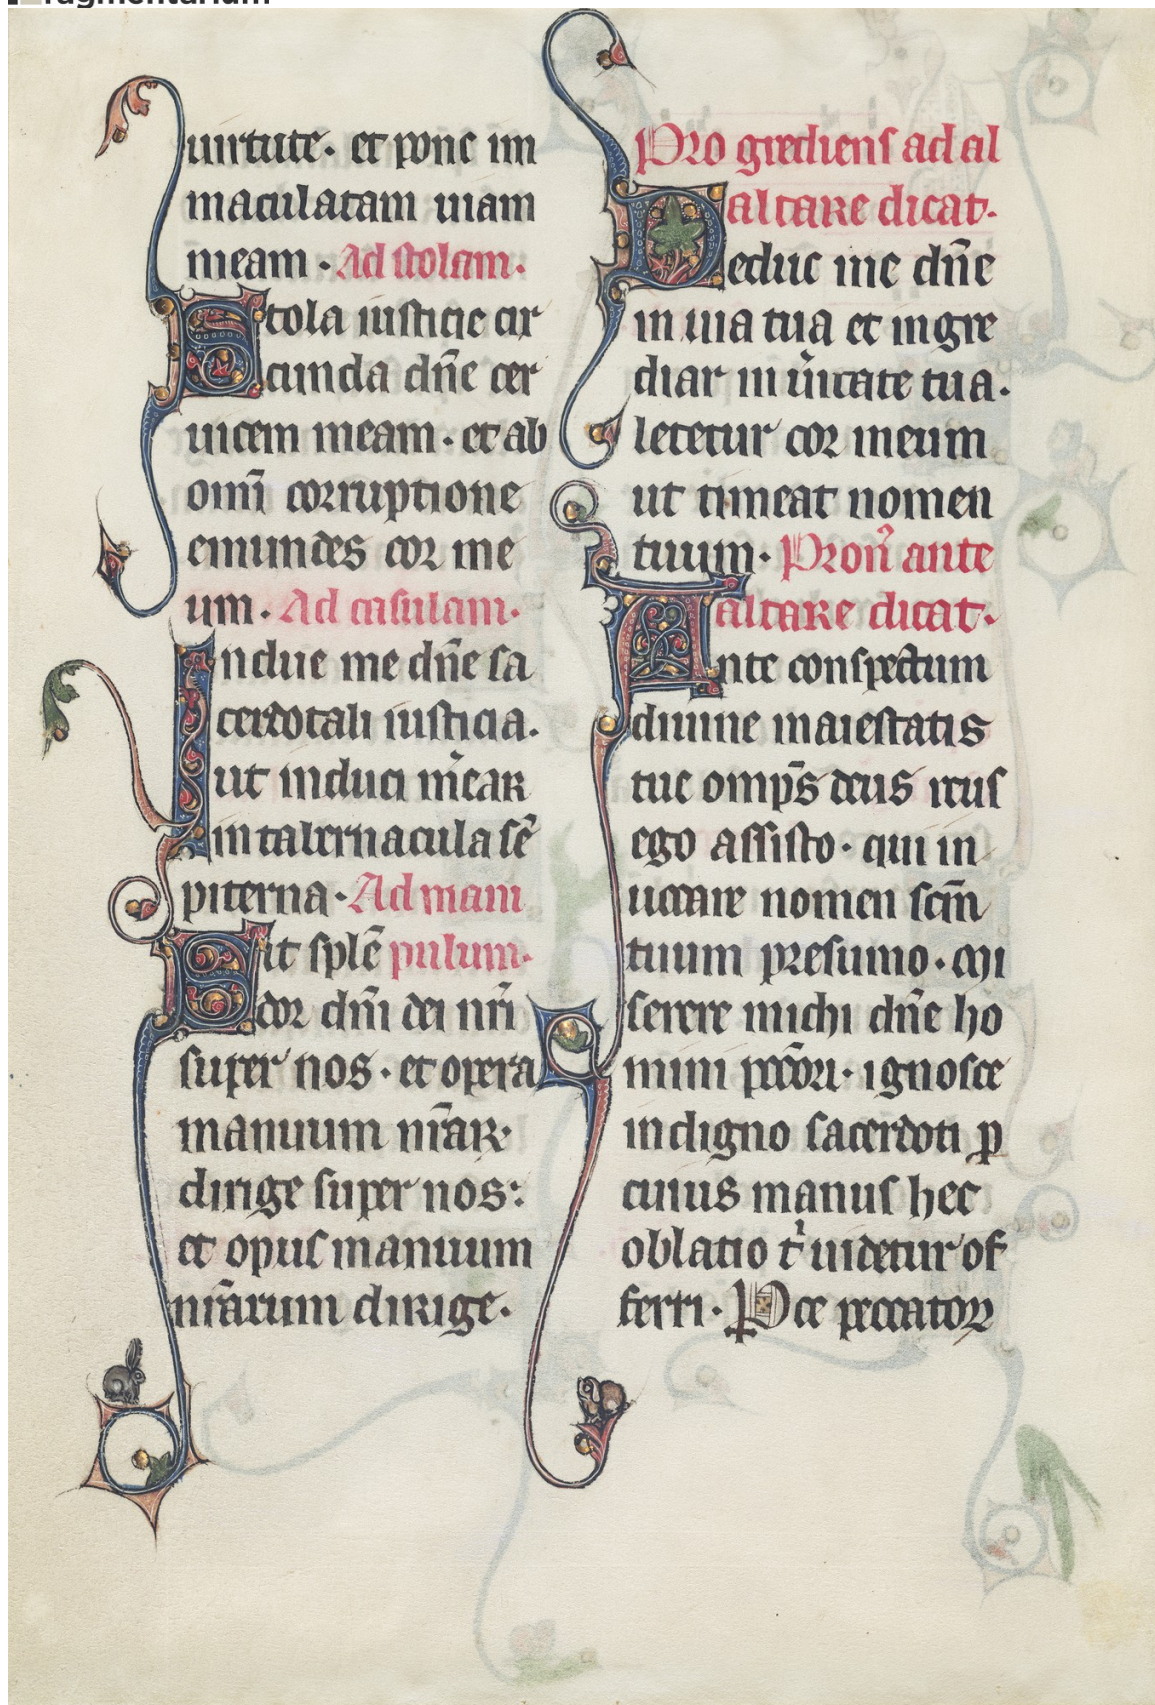 ragmentarium
uirtute. et pone im
maculatam uiam
meam. Ad stolam.
Stola iusticie cir
cunda dñe cer
uicem meam. et ab
omĩ corruptione
emundes cor me
um. Ad casulam.
Indue me dñe sa
cerdotali iusticia.
ut induci m̃ear
in tabernacula sẽ
piterna. Ad mani
Sit splẽ pulum.
dor dñi dei nr̃i
super nos. et opera
manuum nr̃ar
dirige super nos:
et opus manuum
nr̃arum dirige.
Pro grediens ad al
altare dicat.
Deduc me dñe
in uia tua et ingre
diar in ũitate tua.
letetur cor meum
ut timeat nomen
tuum. Pron̄ ante
altare dicat.
Ante conspectum
diuine maiestatis
tue omp̄s deus reus
ego assisto. qui in
uocare nomen sc̃m
tuum presumo. Mi
serere michi dñe ho
mini pcc̃ori. ignosce
indigno sacerdoti ꝑ
cuius manus hec
oblatio t' uidetur of
ferri. Pce peccatoꝝ